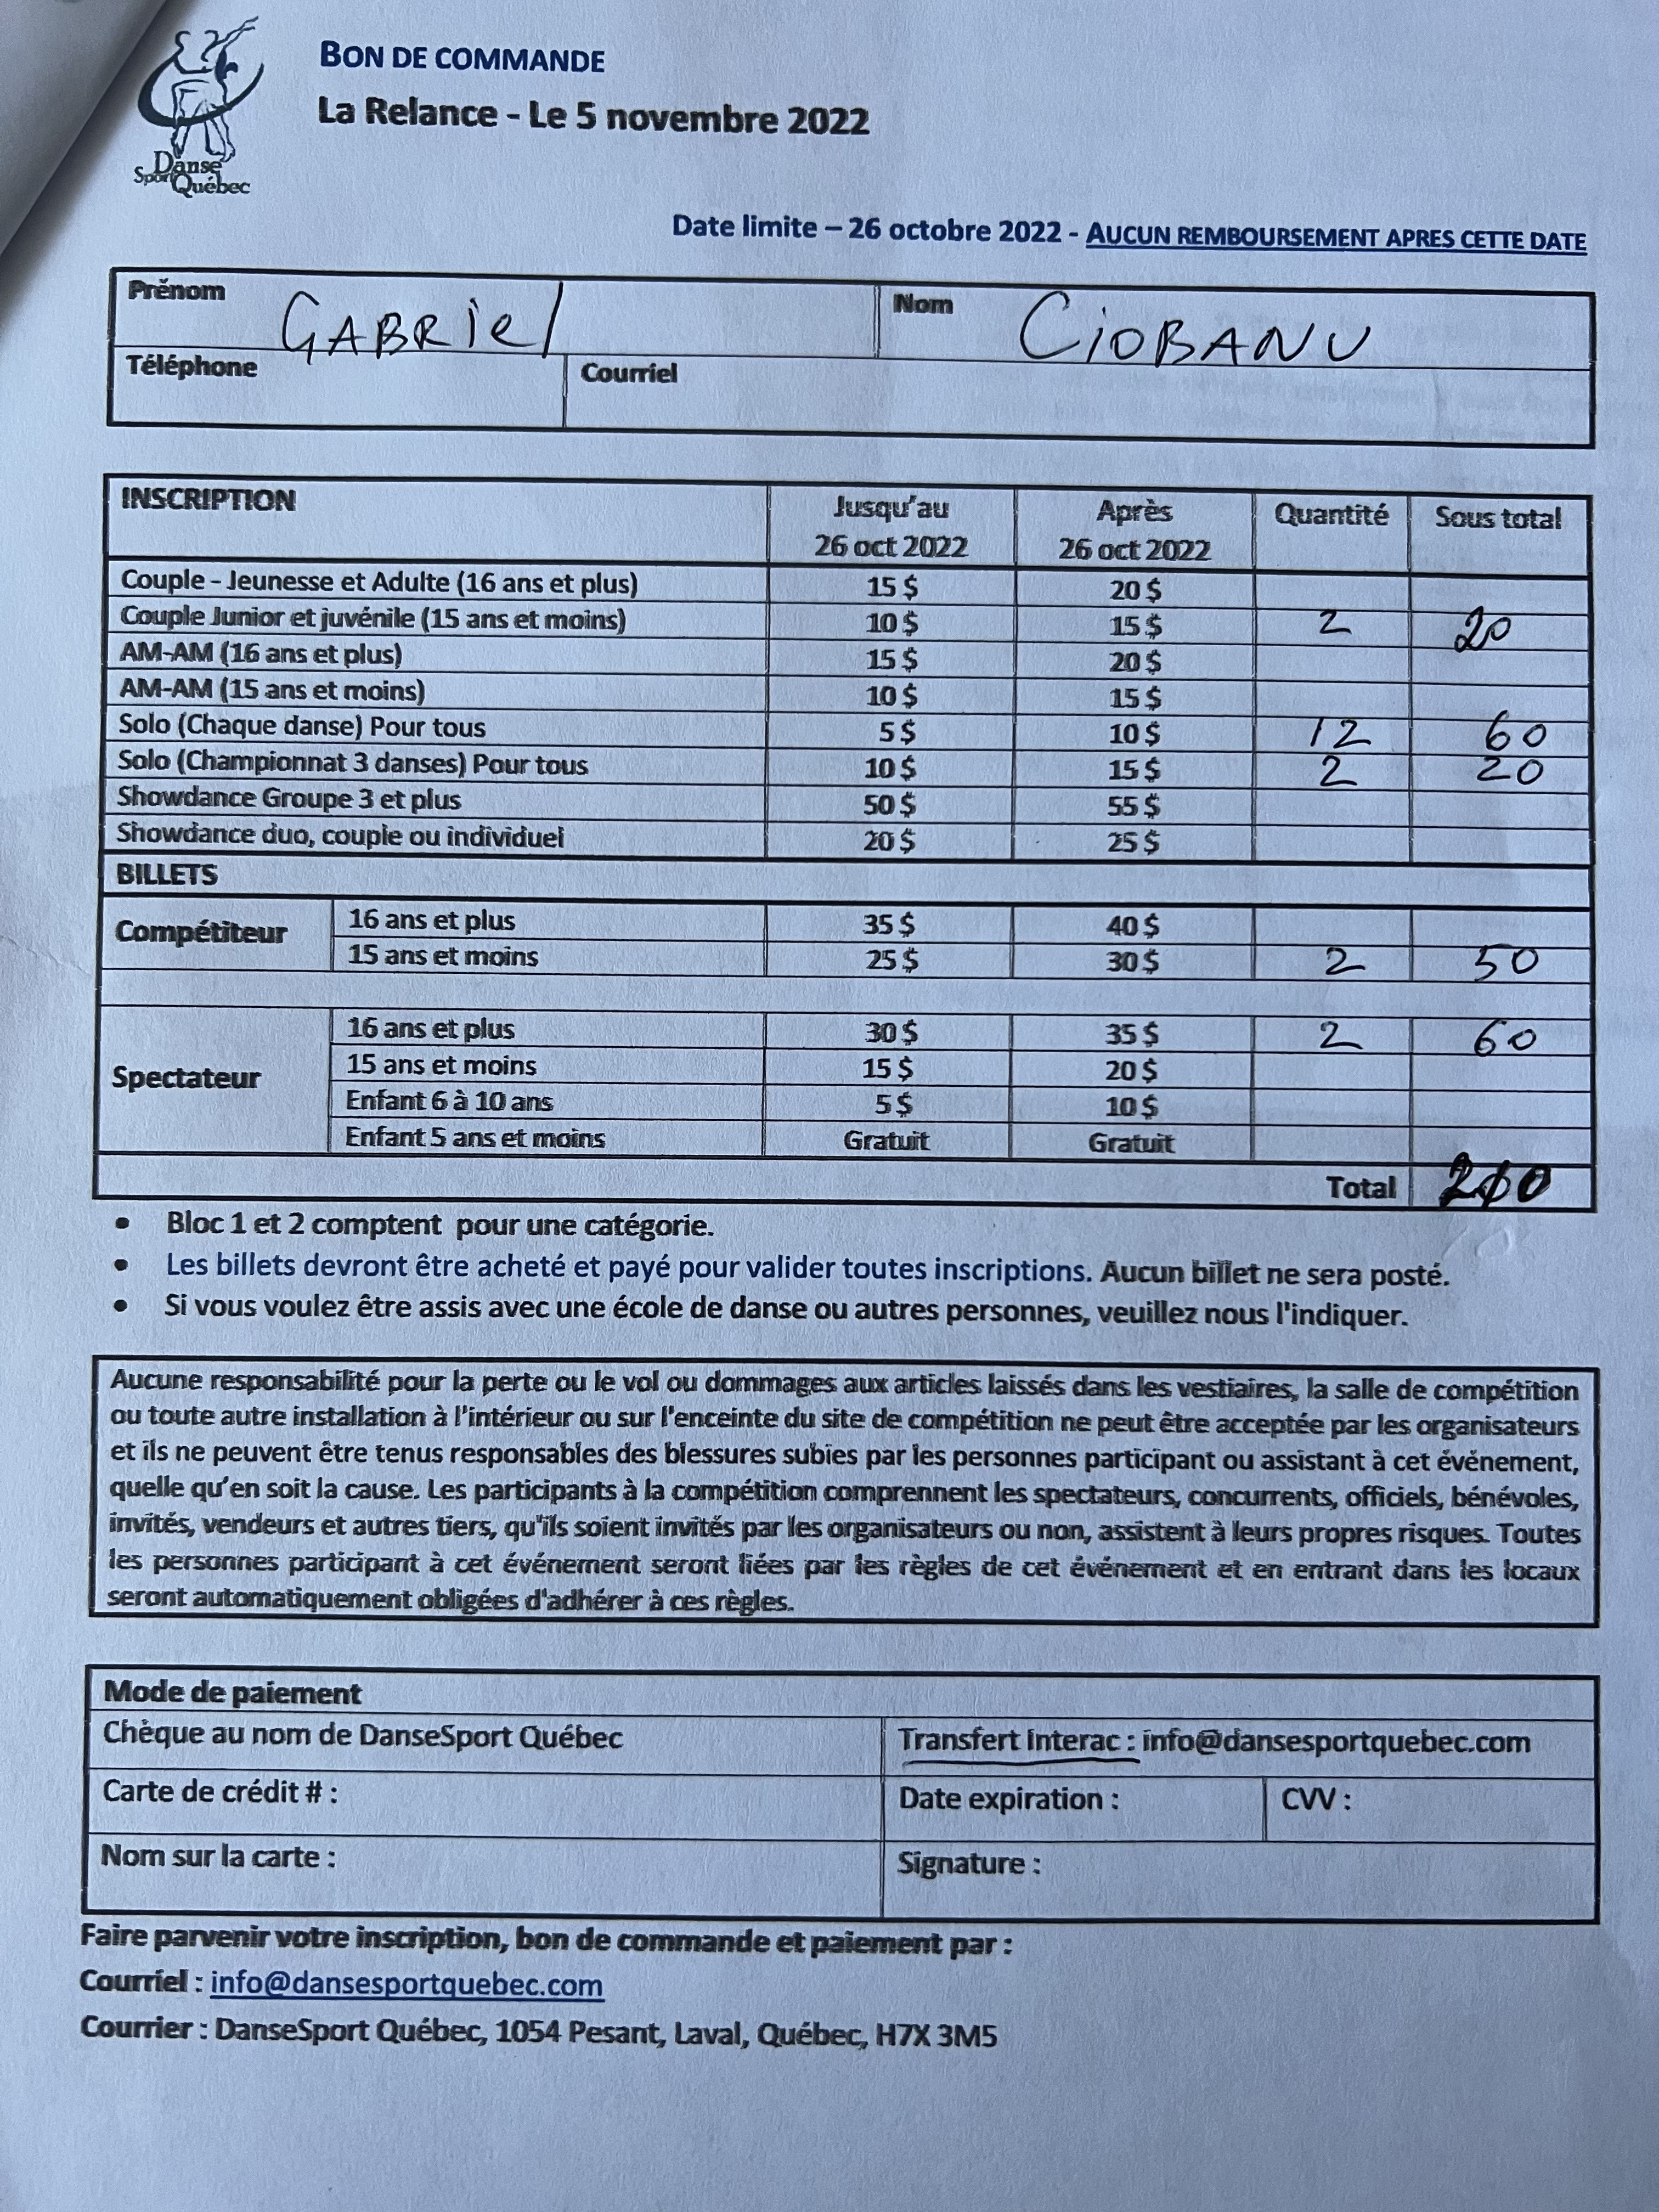 Danse
Sport Québec
BON DE COMMANDE
La Relance - Le 5 novembre 2022
Date limite – 26 octobre 2022 - AUCUN REMBOURSEMENT APRES CETTE DATE
Prénom GABRIEL Nom CIOBANU
Téléphone Courriel
INSCRIPTION Jusqu'au 26 oct 2022 Après 26 oct 2022 Quantité Sous total
Couple - Jeunesse et Adulte (16 ans et plus) 15 $ 20 $
Couple Junior et juvénile (15 ans et moins) 10 $ 15 $ 2 20
AM-AM (16 ans et plus) 15 $ 20 $
AM-AM (15 ans et moins) 10 $ 15 $
Solo (Chaque danse) Pour tous 5 $ 10 $ 12 60
Solo (Championnat 3 danses) Pour tous 10 $ 15 $ 2 20
Showdance Groupe 3 et plus 50 $ 55 $
Showdance duo, couple ou individuel 20 $ 25 $
BILLETS
Compétiteur 16 ans et plus 35 $ 40 $
15 ans et moins 25 $ 30 $ 2 50
Spectateur 16 ans et plus 30 $ 35 $ 2 60
15 ans et moins 15 $ 20 $
Enfant 6 à 10 ans 5 $ 10 $
Enfant 5 ans et moins Gratuit Gratuit
Total 210
• Bloc 1 et 2 comptent pour une catégorie.
• Les billets devront être acheté et payé pour valider toutes inscriptions. Aucun billet ne sera posté.
• Si vous voulez être assis avec une école de danse ou autres personnes, veuillez nous l'indiquer.
Aucune responsabilité pour la perte ou le vol ou dommages aux articles laissés dans les vestiaires, la salle de compétition
ou toute autre installation à l'intérieur ou sur l'enceinte du site de compétition ne peut être acceptée par les organisateurs
et ils ne peuvent être tenus responsables des blessures subies par les personnes participant ou assistant à cet événement,
quelle qu'en soit la cause. Les participants à la compétition comprennent les spectateurs, concurrents, officiels, bénévoles,
invités, vendeurs et autres tiers, qu'ils soient invités par les organisateurs ou non, assistent à leurs propres risques. Toutes
les personnes participant à cet événement seront liées par les règles de cet événement et en entrant dans les locaux
seront automatiquement obligées d'adhérer à ces règles.
Mode de paiement
Chèque au nom de DanseSport Québec Transfert Interac : info@dansesportquebec.com
Carte de crédit # : Date expiration : CVV :
Nom sur la carte : Signature :
Faire parvenir votre inscription, bon de commande et paiement par :
Courriel : info@dansesportquebec.com
Courrier : DanseSport Québec, 1054 Pesant, Laval, Québec, H7X 3M5